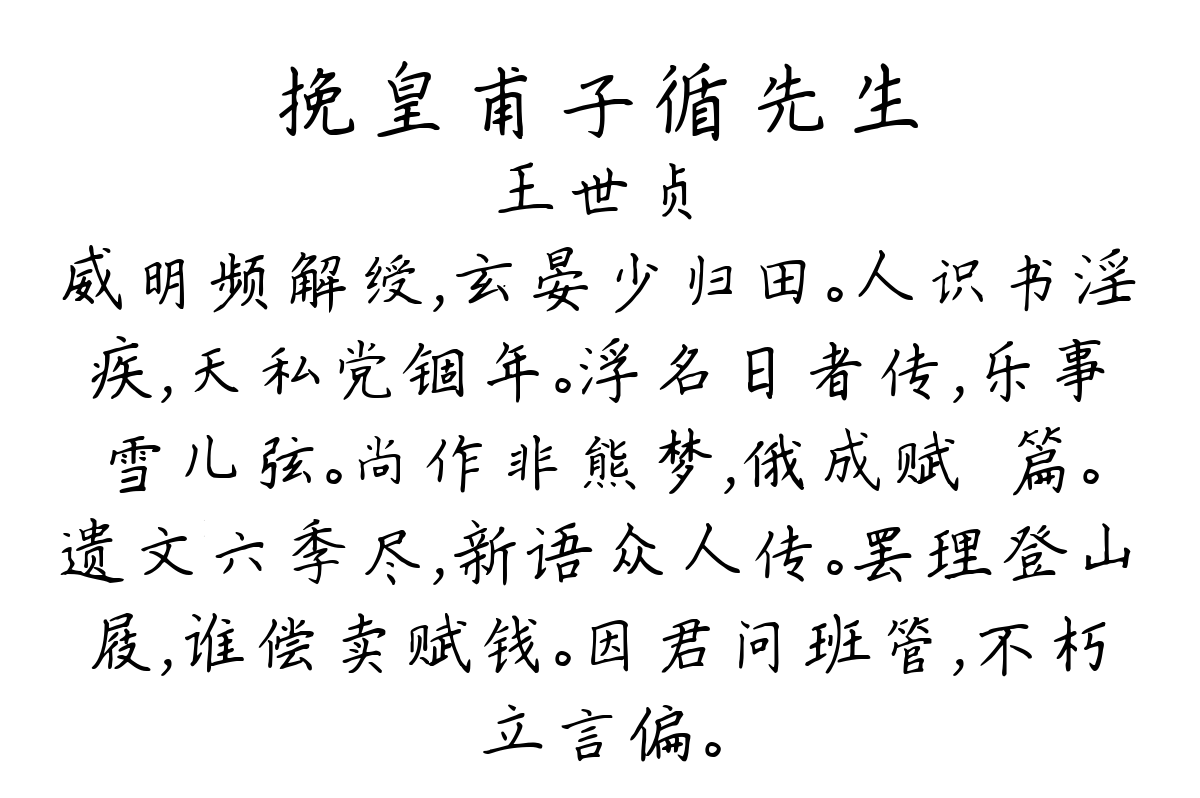 挽皇甫子循先生
王世贞
威明频解绶,玄晏少归田。人识书淫
疾,天私党锢年。浮名日者传,乐事
雪儿弦。尚作非熊梦,俄成赋 篇。
遗文六季尽,新语众人传。罢理登山
屐,谁偿卖赋钱。因君问班管,不朽
立言偏。